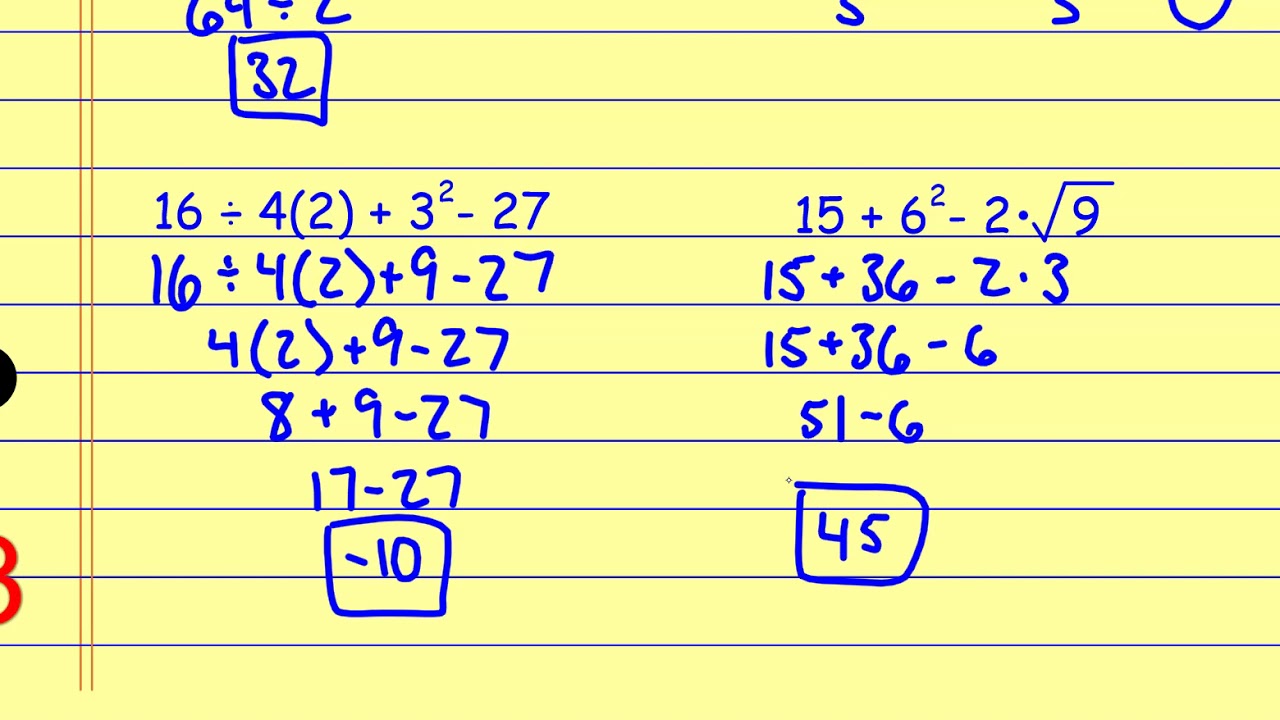 64 ÷ 2
32
16 ÷ 4(2) + 3² - 27
16 ÷ 4(2) + 9 - 27
4(2) + 9 - 27
8 + 9 - 27
17 - 27
-10
15 + 6² - 2·√9
15 + 36 - 2·3
15 + 36 - 6
51 - 6
45